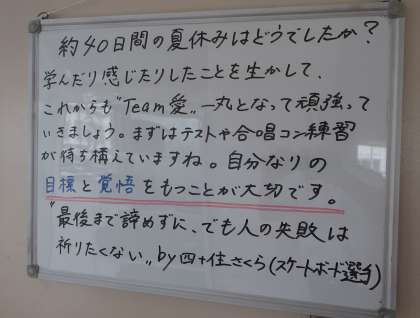 約40日間の夏休みはどうでしたか?
学んだり感じたりしたことを生かして、
これからも"Team愛"一丸となって頑強って
いきましょう。まずはテストや合唱コン練習
が待ち構えていますね。自分なりの
目標と覚悟をもつことが大切です。
"最後まで諦めずに、でも人の失敗は
祈りたくない" by 四十住さくら(スケートボード選手)